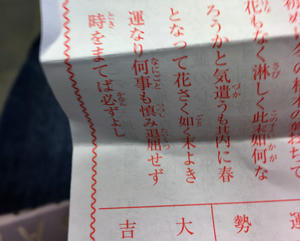 花もなく淋しく此末如何な
ろうかと気遣うも其内に春
となって花さく如く末よき
運なり何事も慎み退屈せず
時をまてば必ずよし
運
勢
大
吉